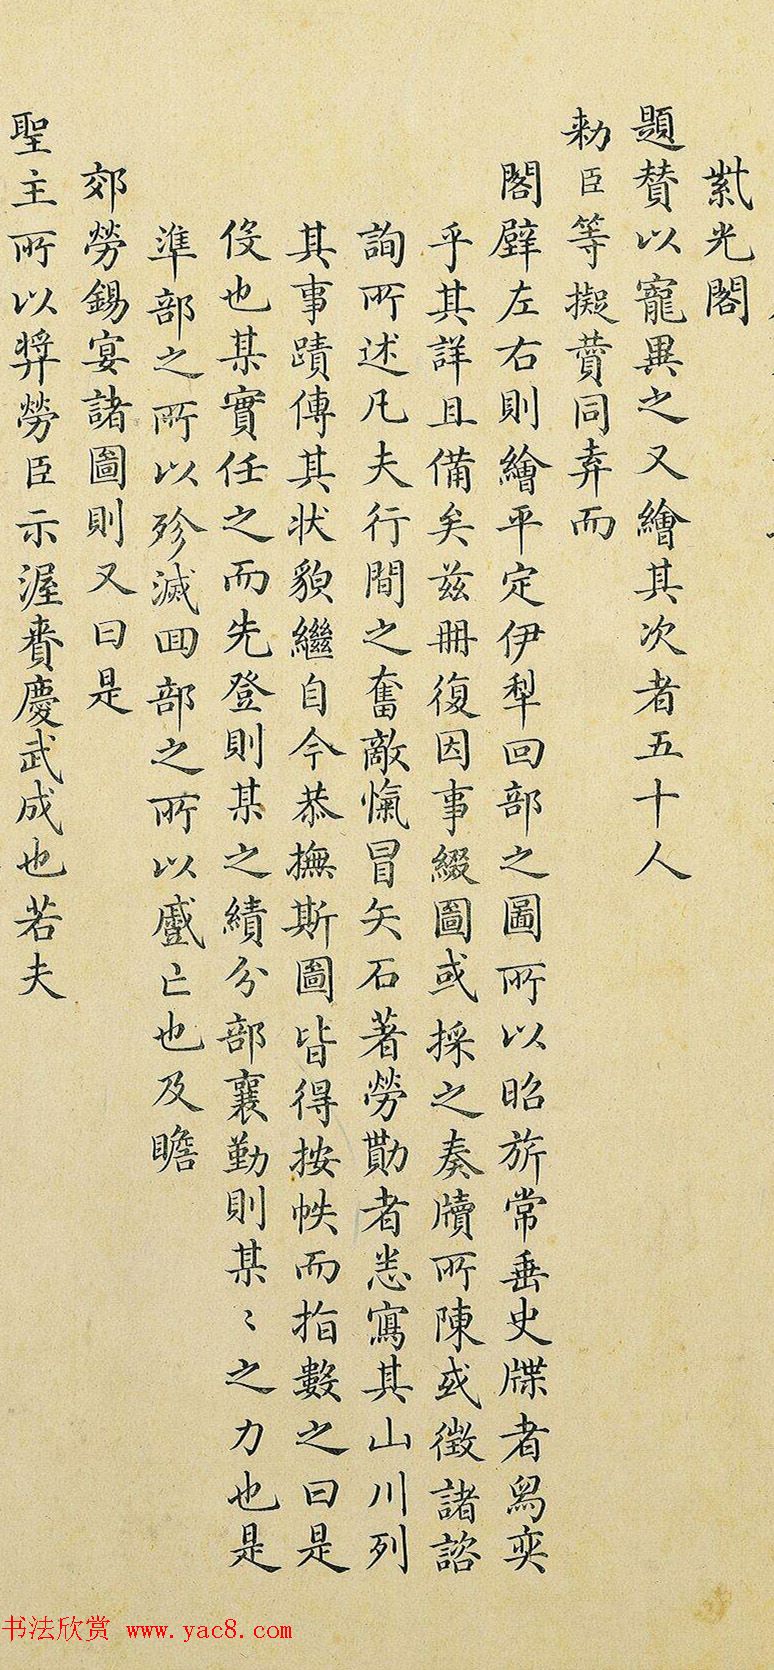 紫光閣
題贊以寵異之又繪其次者五十人
勅臣等擬贊同弆而
閣壁左右則繪平定伊犁回部之圖所以昭旂常垂史牒者爲奕
乎其詳且備矣茲冊復因事綴圖或採之奏牘所陳或徵諸諮
詢所述凡夫行間之奮敵愾冒矢石著勞勩者悉寫其山川列
其事蹟傳其狀貌繼自今恭撫斯圖皆得按帙而指數之曰是
伇也某實任之而先登則某之績分部襄勤則某〻之力也是
準部之所以殄滅回部之所以蕆亡也及瞻
郊勞錫宴諸圖則又曰是
聖主所以弉勞臣示渥賚慶武成也若夫
书法欣赏 www.yac8.com